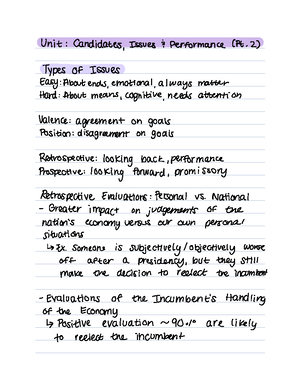 Unit: Candidates, Issues & Performance (Pt. 2)
Types of Issues
Easy: About ends, emotional, always matter
Hard: About means, cognitive, needs attention
Valence: agreement on goals
Position: disagreement on goals
Retrospective: looking back, performance
Prospective: looking forward, promissory
Retrospective Evaluations: Personal vs. National
- Greater impact on judgements of the
nation's economy versus our own personal
situations
↳ Ex. Someone is subjectively/objectively worse
off after a presidency, but they still
make the decision to reelect the incumbent
- Evaluations of the Incumbent's Handling
of the Economy
↳ Positive evaluation ~90% are likely
to reelect the incumbent